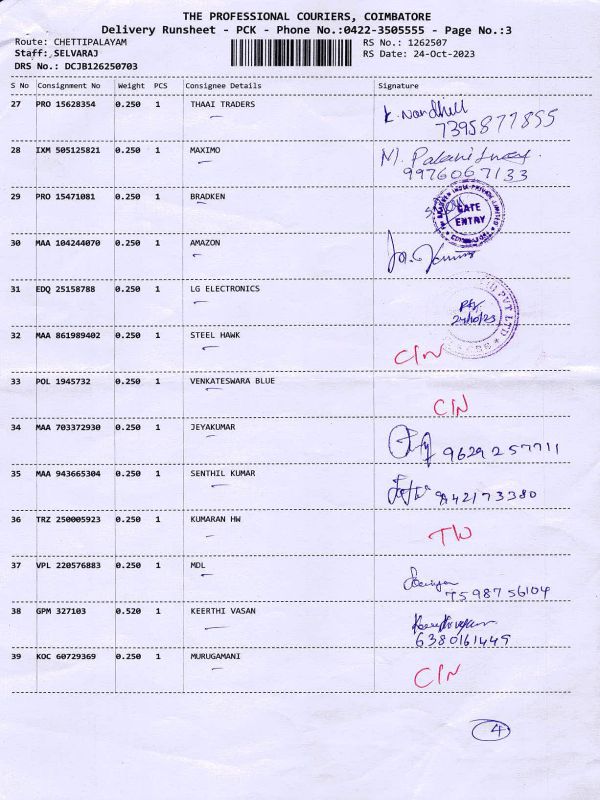 THE PROFESSIONAL COURIERS, COIMBATORE
Delivery Runsheet - PCK - Phone No.:0422-3505555 - Page No.:3
Route: CHETTIPALAYAM RS No.: 1262507
Staff: SELVARAJ RS Date: 24-Oct-2023
DRS No.: DCJB126250703
S No Consignment No Weight PCS Consignee Details Signature
27 PRO 15628354 0.250 1 THAAI TRADERS
7395877855
28 IXM 505125821 0.250 1 MAXIMO M.
9976067133
29 PRO 15471081 0.250 1 BRADKEN
GATE
ENTRY
30 MAA 104244070 0.250 1 AMAZON
31 EDQ 25158788 0.250 1 LG ELECTRONICS
24/10/23
PVT LTD
32 MAA 861989402 0.250 1 STEEL HAWK CIN
33 POL 1945732 0.250 1 VENKATESWARA BLUE CIN
34 MAA 703372930 0.250 1 JEYAKUMAR 9629257711
35 MAA 943665304 0.250 1 SENTHIL KUMAR 9842173380
36 TRZ 250005923 0.250 1 KUMARAN HW
37 VPL 220576883 0.250 1 MDL
7598756104
38 GPM 327103 0.520 1 KEERTHI VASAN
6380161449
39 KOC 60729369 0.250 1 MURUGAMANI CIN
4